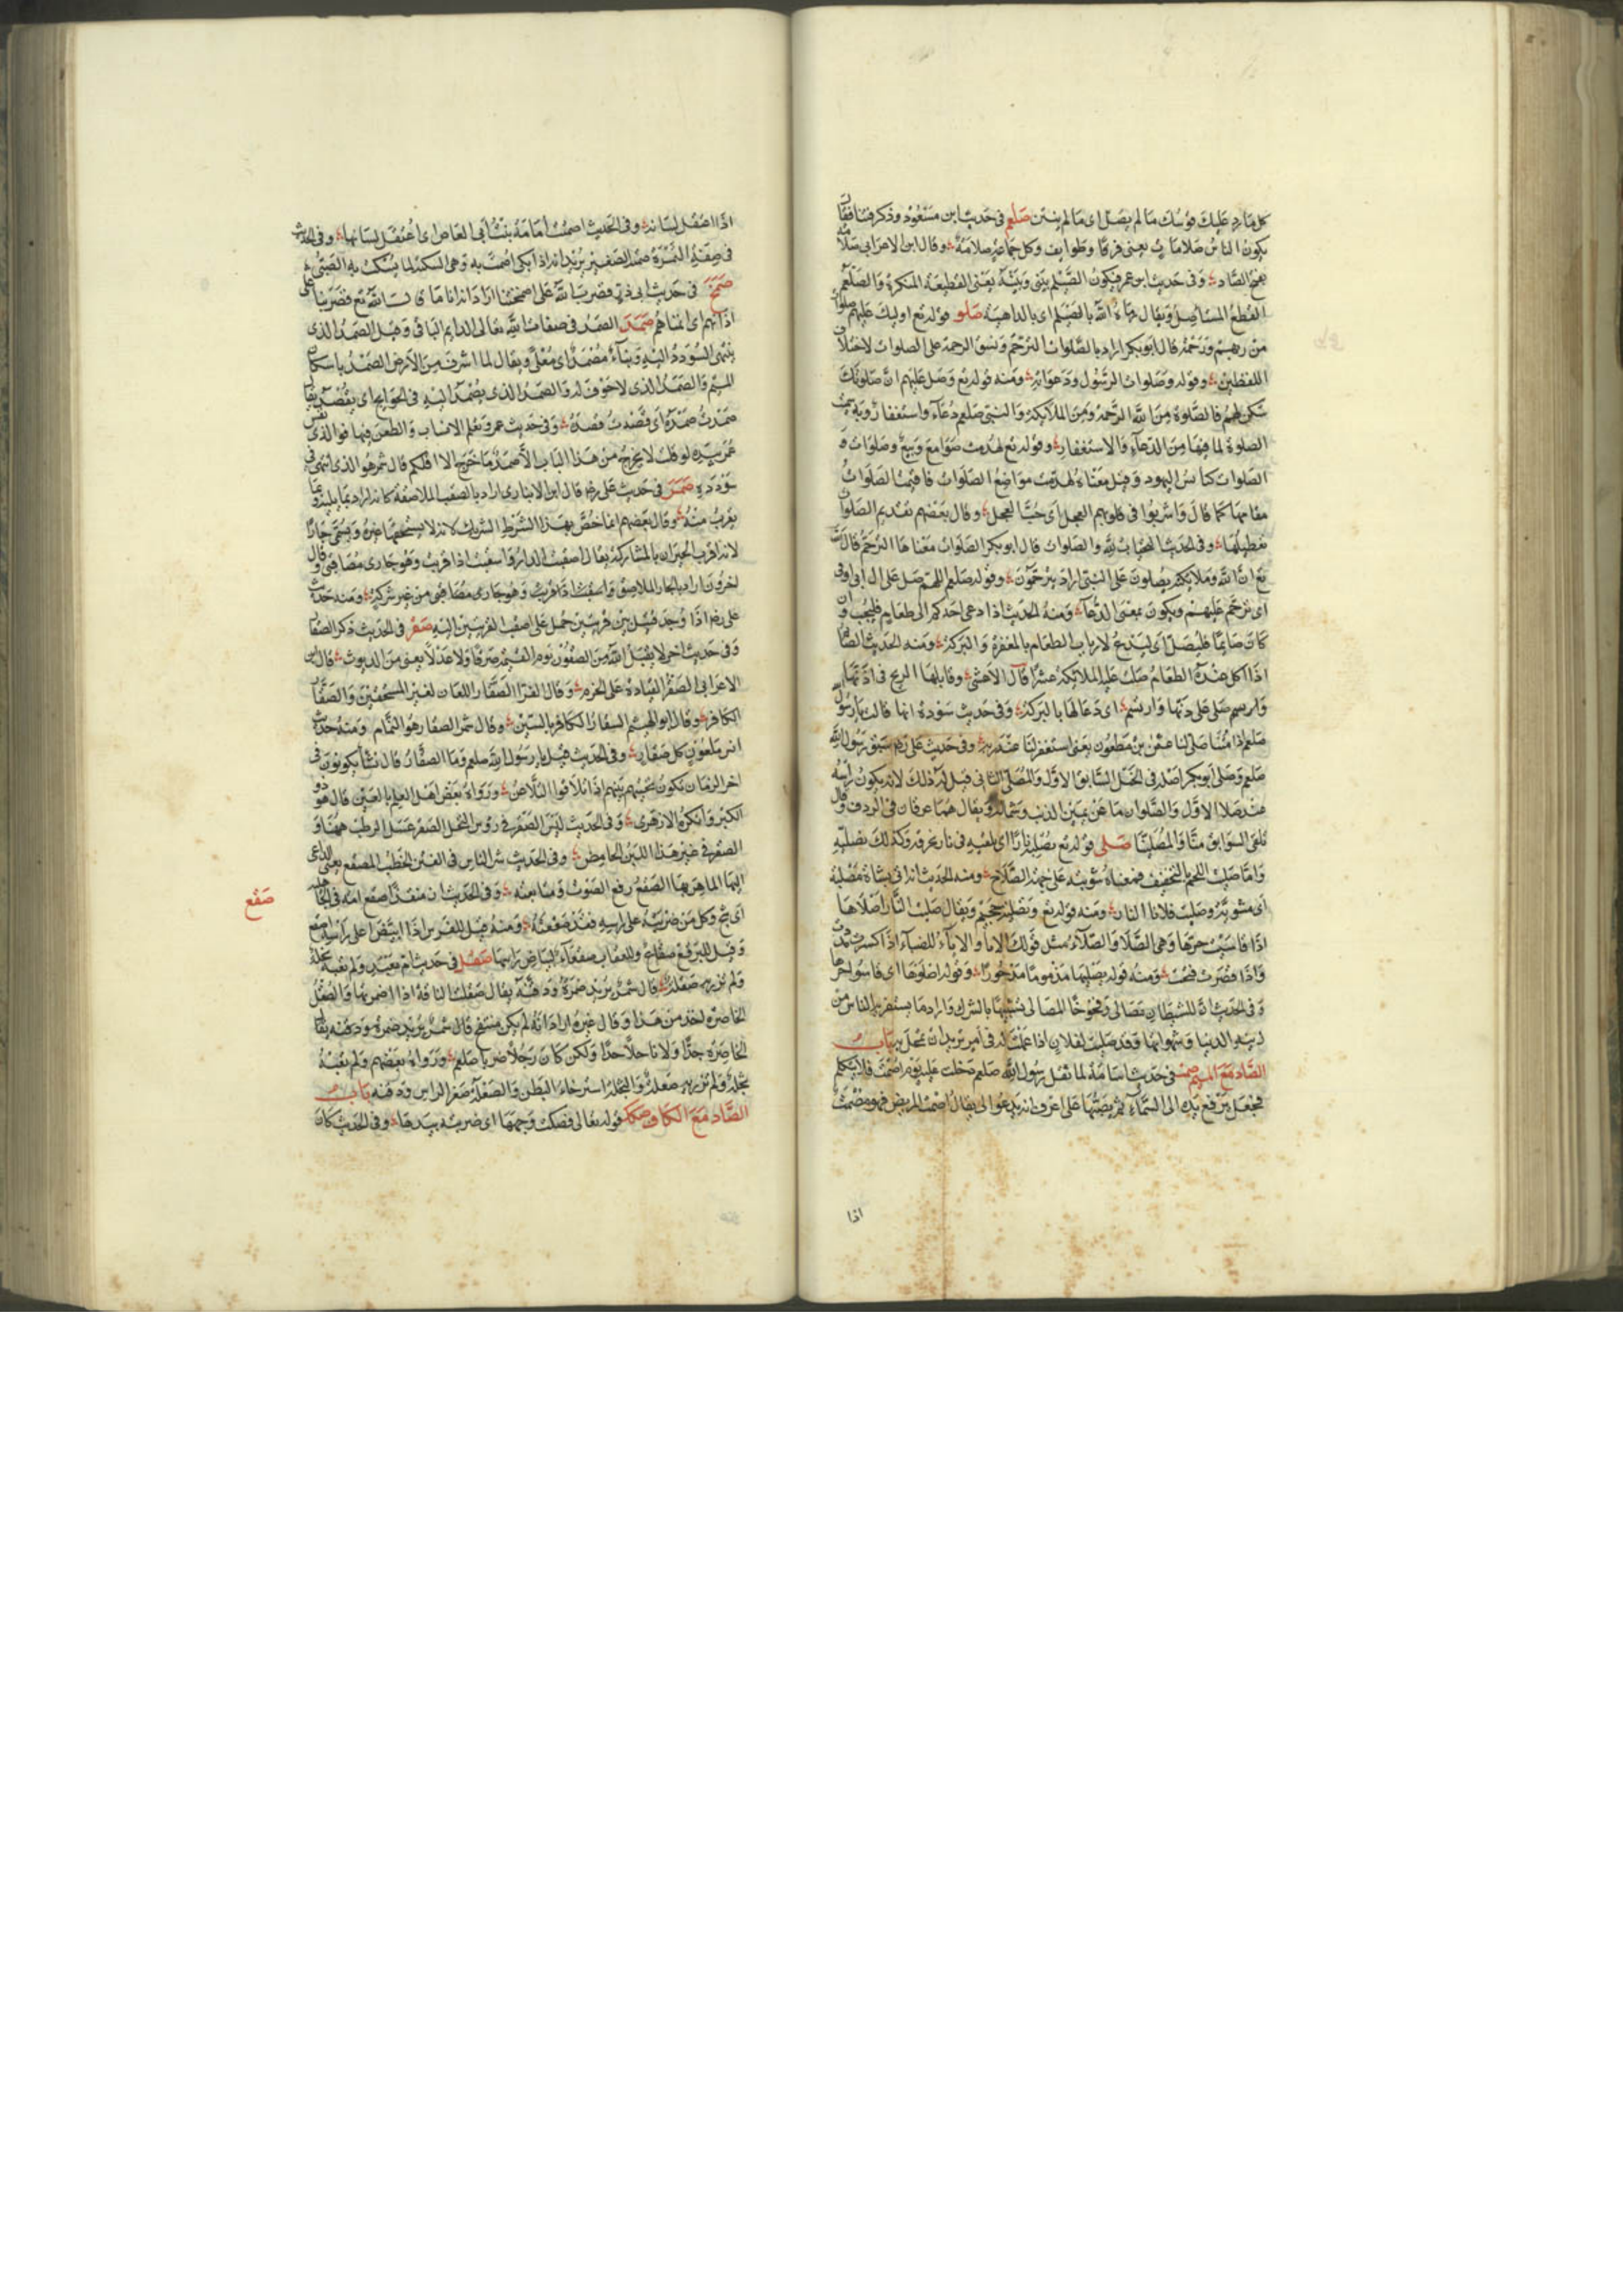 كل ما رد عليك قوسك ما لم يصل اى ما لم ينتن صلم فى حديث ابن مسعود وذكر فتنا فقال
يكون الناس صلامات يعنى فرقا وطوايف وكل جماعة صلامة وقال ابن الاعرابى صلامة
بفتح الصاد وفى حديث ابن عمر فيكون الصيلم بينى وبينه يعنى القطيعة المنكرة والصيلم
القطع المستاصل ويقال رماه الله بالصيلم اى بالداهية صلو قوله تع اوليك عليهم صلوات
من ربهم ورحمة قال ابو بكر اراد بالصلوات الترحم ونسق الرحمة على الصلوات لاختلاف
اللفظين وقوله وصلوات الرسول ودعواته ومنه قوله تع وصل عليهم ان صلوتك
سكن لهم فالصلوة من الله الرحمة ومن الملايكة والنبى صلعم دعاء واستغفار وبه سميت
الصلوة لما فيها من الدعاء والاستغفار وقوله تع لهدمت صوامع وبيع وصلوات و
الصلوات كنايس اليهود وقيل معناه لهدمت مواضع الصلوات فاقيمت الصلوات
مقامها كما قال واشربوا فى قلوبهم العجل اى حب العجل وقال بعضهم تهديم الصلوات
تعطيلها وفى الحديث التحيات لله والصلوات قال ابو بكر الصلوات معناها الترحم قال الله
تع ان الله وملايكته يصلون على النبى اراد يترحمون وقوله صلعم اللهم صل على ال ابى اوفى
اى ترحم عليهم ويكون بمعنى الدعاء ومنه الحديث اذا دعى احدكم الى طعام فليجب وان
كان صايما فليصل اى ليدع لارباب الطعام بالمغفرة والبركة ومنه الحديث الصايم
اذا اكل عنده الطعام صلت عليه الملايكة عشرا قال الاعشى وقابلها الريح فى دنها
وارسم صلى على دنها وارتسم اى دعا لها بالبركة وفى حديث سودة انها قالت يا رسول
صلعم اذا متنا صلى لنا عثمن بن مظعون يعنى استغفر لنا عند ربه وفى حديث على رضه سبق رسول الله
صلعم وصلى ابو بكر اصله فى الخيل السابق الاول والمصلى الثانى قيل له ذلك لانه يكون راسه
عند صلا الاول والصلوان ما عن يمين الذنب وشماله ويقال هما عرقان فى الردف وقال
تلقى السوابق منا والمصلينا صلى قوله تع نصليه نارا اى نلقيه فى نار يحرقه وكذلك نصليه
واما صليت اللحم بالتخفيف فمعناه شويته على جهة الصلاح ومنه الحديث انه اتى بشاة مصلية
اى مشوية وصليت فلانا النار ومنه قوله تع وتصلية جحيم ويقال صليت النار اصلاها
اذا قاسيت حرها وهى الصلا والصلاء مثل قولك الايا والاياء للضياء اذا كسرت مددت
واذا قصرت فتحت ومنه قوله يصليها مذموما مدحورا وقوله اصلوها اى قاسوا حرها
وفى الحديث ان للشيطان مصالى وفخوخا المصالى شبيهة بالشرك واراد ما يستفز به الناس من
زينة الدنيا وشهواتها وقد صليت لفلان اذا عملت له فى امر تريد ان تمحل به باب
الصاد مع الميم صمت فى حديث اسامة لما ثقل رسول الله صلعم دخلت عليه يوم اصمت فلا يتكلم
فجعل يرفع يده الى السماء ثم يصبها على اعرف انه يدعو لى يقال اصمت المريض فهو مصمت
اذا
اذا اعتقل لسانه وفى الحديث اصمت امامة بنت ابى العاص اى اعتقل لسانها وفى الحديث
فى صفة التمرة صمتة الصغير يريد انه اذا بكى اصمت به وهى السكتة لما يسكت به الصبى
صمخ فى حديث ابى ذر فضرب الله على اصمختنا اراد انه انامنا كان الله تع فضربنا على
اذانهم اى انمناهم صمد الصمد فى صفات الله تعالى الدايم الباقى وقيل الصمد الذى
ينتهى السودد اليه وبناء مصمد اى معلى ويقال لما اشرف من الارض الصمد باسكان
الميم والصمد الذى لا جوف له والصمد الذى يصمد اليه فى الحوايج اى يقصد يقال
صمدت صمده اى قصدت قصده وفى حديث عمر وتعلم الانساب والطعن فيها فوالذى نفس
عمر بيده لو قلت لا يخرج من هذا الباب الا صمد ما خرج الا اقلكم قال شمر هو الذى انتهى فى
سودده صقب فى حديث على رضه قال ابن الانبارى اراد بالصقب الملاصقة كانه اراد بما يليه وبما
يقرب منه وقال بعضهم انما خص بهذا الشرط الشريك لانه لا يستحقها غيره ويسمى جارا
لانه اقرب الجيران بالمشاركة يقال اصقبت الدار واسقبت اذا قربت وهو جارى مصاقبى وقال
اخرون اراد بالجار الملاصق واسقبت اذا قربت وهو جارى مصاقبى من غير شركة ومنه حديث
على رضه اذا وجد قتيل بين قريتين حمل على اصقب القريتين اليه صقر فى الحديث ذكر الصقار
وفى حديث اخر لا يقبل الله من الصقور يوم القيمة صرفا ولا عدلا يعنى من الديوث قال ابن
الاعرابى الصقر القيادة على الحرم وقال الفرا الصقار اللعان لغير المستحقين والصقار
الكافر وقال ابو الهيثم السقار الكافر بالسين وقال شمر الصقار هو النمام ومنه حديث
انس ملعون كل صقار وفى الحديث قيل يا رسول الله صلعم وما الصقار قال نشأ يكونون فى
اخر الزمان تكون تحيتهم بينهم اذا تلاقوا التلاعن ورواه بعض اهل العلم بالعين قال هو ذو
الكبر وانكره الازهرى وفى الحديث ليس الصقر فى روس النخل الصقر عسل الرطب ههنا و
الصقر فى غير هذا اللبن الحامض وفى الحديث شر الناس فى الفتن الخطيب المصقع يعنى الداعى
اليها الماهر بها الصقع رفع الصوت ومتابعته وفى الحديث ان منقذا صقع امة فى الجاهلية
صقع
اى شج وكل من ضربته على راسه فقد صقعته ومنه قيل للفرس اذا ابيض اعلى راسه اصقع
وقيل للبرقع صقاع وللعقاب صقعاء لبياض راسها صقل فى حديث ام معبد ولم تعبه نحلة
ولم تزر به صقلة قال شمر يريد ضمرة ودقة يقال صقلت الناقة اذا اضمرتها والصقل
الخاصرة اخذ من هذا وقال غيره اراد انه لم يكن منتفخ قال شمر يريد ضمره ودقته يقال
الخاصرة جدا ولا ناحلا جدا ولكن كان رجلا ضربا صلعم ورواه بعضهم ولم تعبه
ثجلة ولم تزر به صعلة والثجلة استرخاء البطن والصعلة صغر الراس ودقته باب
الصاد مع الكاف صكك قوله تعالى فصكت وجهها اى ضربته بيدها وفى الحديث كان